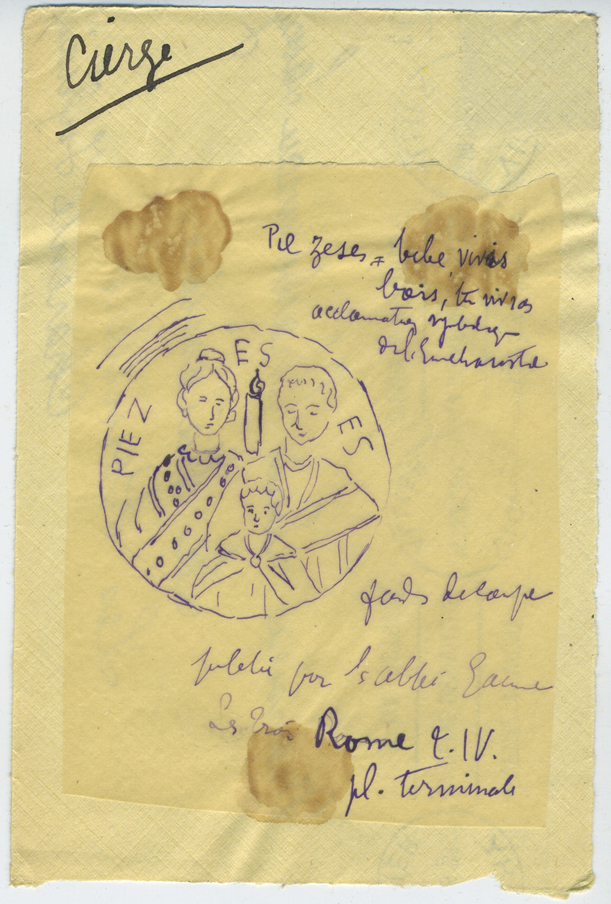 Cierge
Pie zeses = bibe, vivas
bois, tu vivras
acclamation
de l'Eucharistie
PIEZ ES ES
fonds de coupe
publié par l'abbé Gaume
Les Trois Rome t. IV.
pl. terminale